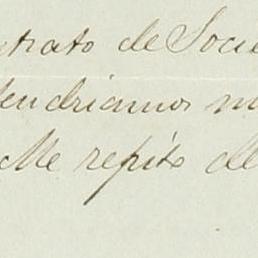 ntrato de Socie
tendriamos m
Me repito de